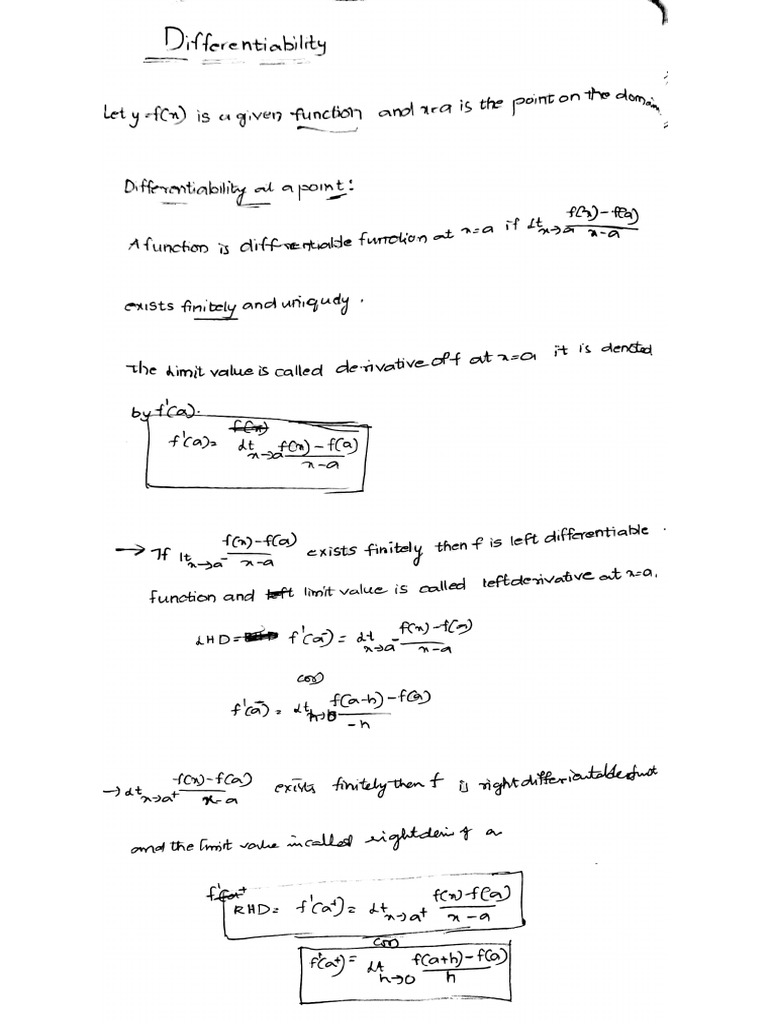 Differentiability
Let y=f(x) is a given function and x=a is the point on the domain
Differentiability at a point:
A function is differentiable function at x=a if Lt x→a f(x)-f(a)/x-a
exists finitely and uniquely.
The Limit value is called derivative of f at x=a it is denoted
by f'(a).
f'(a)= Lt x→a f(x)-f(a)/x-a
→ If lt x→a⁻ f(x)-f(a)/x-a exists finitely then f is left differentiable.
function and limit value is called left derivative at x=a.
LHD= f'(a⁻) = Lt x→a⁻ f(x)-f(a)/x-a
(or)
f'(a⁻) = Lt h→0 f(a-h)-f(a)/-h
→ Lt x→a⁺ f(x)-f(a)/x-a exists finitely then f is right differentiable funct
and the limit value is called right deri of a
RHD= f'(a⁺) = Lt x→a⁺ f(x)-f(a)/x-a
(or)
f'(a⁺) = Lt h→0 f(a+h)-f(a)/h